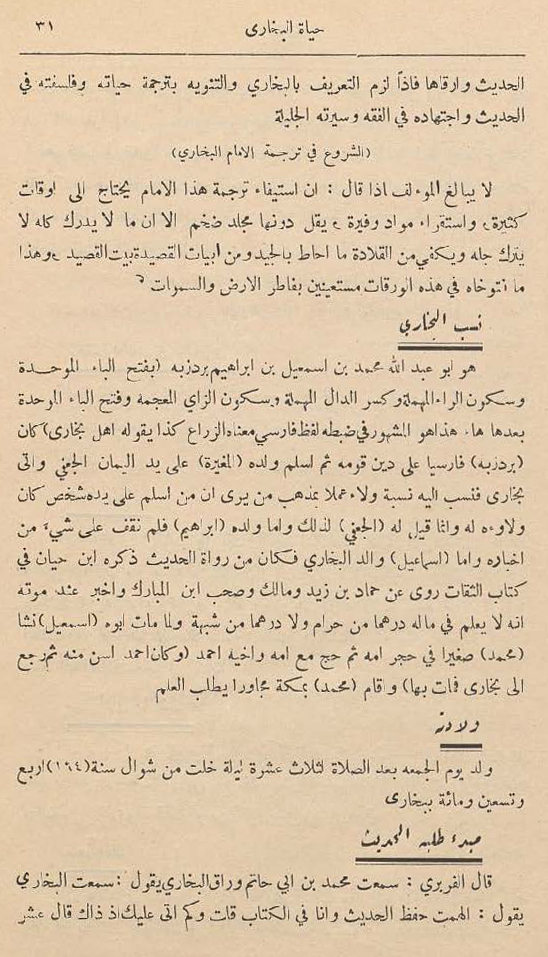 حياة البخارى ٣١
الحديث وارقاها فاذاً لزم التعريف بالبخاري والتنويه بترجمة حياته وفلسفته في
الحديث واجتهاده في الفقه وسيرته الجليلة
(الشروع في ترجمة الامام البخاري)
لا يبالغ الموءلف اذا قال : ان استيفاء ترجمة هذا الامام يحتاج الى اوقات
كثيرة، واستقراء مواد وفيرة، يقل دونها مجلد ضخم الا ان ما لا يدرك كله لا
يترك جله ويكفي من القلادة ما احاط بالجيد ومن ابيات القصيدة بيت القصيد، وهذا
ما نتوخاه في هذه الورقات مستعينين بفاطر الارض والسموات
نسب البخاري
هو ابو عبد الله محمد بن اسمعيل بن ابراهيم بردزبه (بفتح الباء الموحدة
وسكون الراء المهملة وكسر الدال المهملة وسكون الزاي المعجمه وفتح الباء الموحدة
بعدها هاء هذا هو المشهور في ضبطه لفظ فارسي معناه الزراع كذا يقوله اهل بخارى) كان
(بردزبه) فارسيا على دين قومه ثم اسلم ولده (المغيرة) على يد اليمان الجعفي واتى
بخارى فنسب اليه نسبة ولاء عملا بمذهب من يرى ان من اسلم على يده شخص كان
ولاوءه له وانما قيل له (الجعفي) لذلك واما ولده (ابراهيم) فلم نقف على شيء من
اخباره واما (اسماعيل) والد البخاري فكان من رواة الحديث ذكره ابن حيان في
كتاب الثقات روى عن حماد بن زيد ومالك وصحب ابن المبارك واخبر عند موته
انه لا يعلم في ماله درهما من حرام ولا درهما من شبهة ولما مات ابوه (اسمعيل) نشا
(محمد) صغيرا في حجر امه ثم حج مع امه واخيه احمد (وكان احمد اسن منه ثم رجع
الى بخارى فمات بها) واقام (محمد) بمكة مجاورا يطلب العلم
ولادته
ولد يوم الجمعه بعد الصلاة لثلاث عشرة ليلة خلت من شوال سنة (١٩٤) اربع
وتسعين ومائة ببخارى
مبدء طلبه الحديث
قال الفربري : سمعت محمد بن ابي حاتم وراق البخاري يقول : سمعت البخاري
يقول : الهمت حفظ الحديث وانا في الكتاب قلت وكم اتى عليك اذ ذاك قال عشر